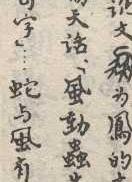 文为鳳的
天话「風動蟲
字」…蛇与風有